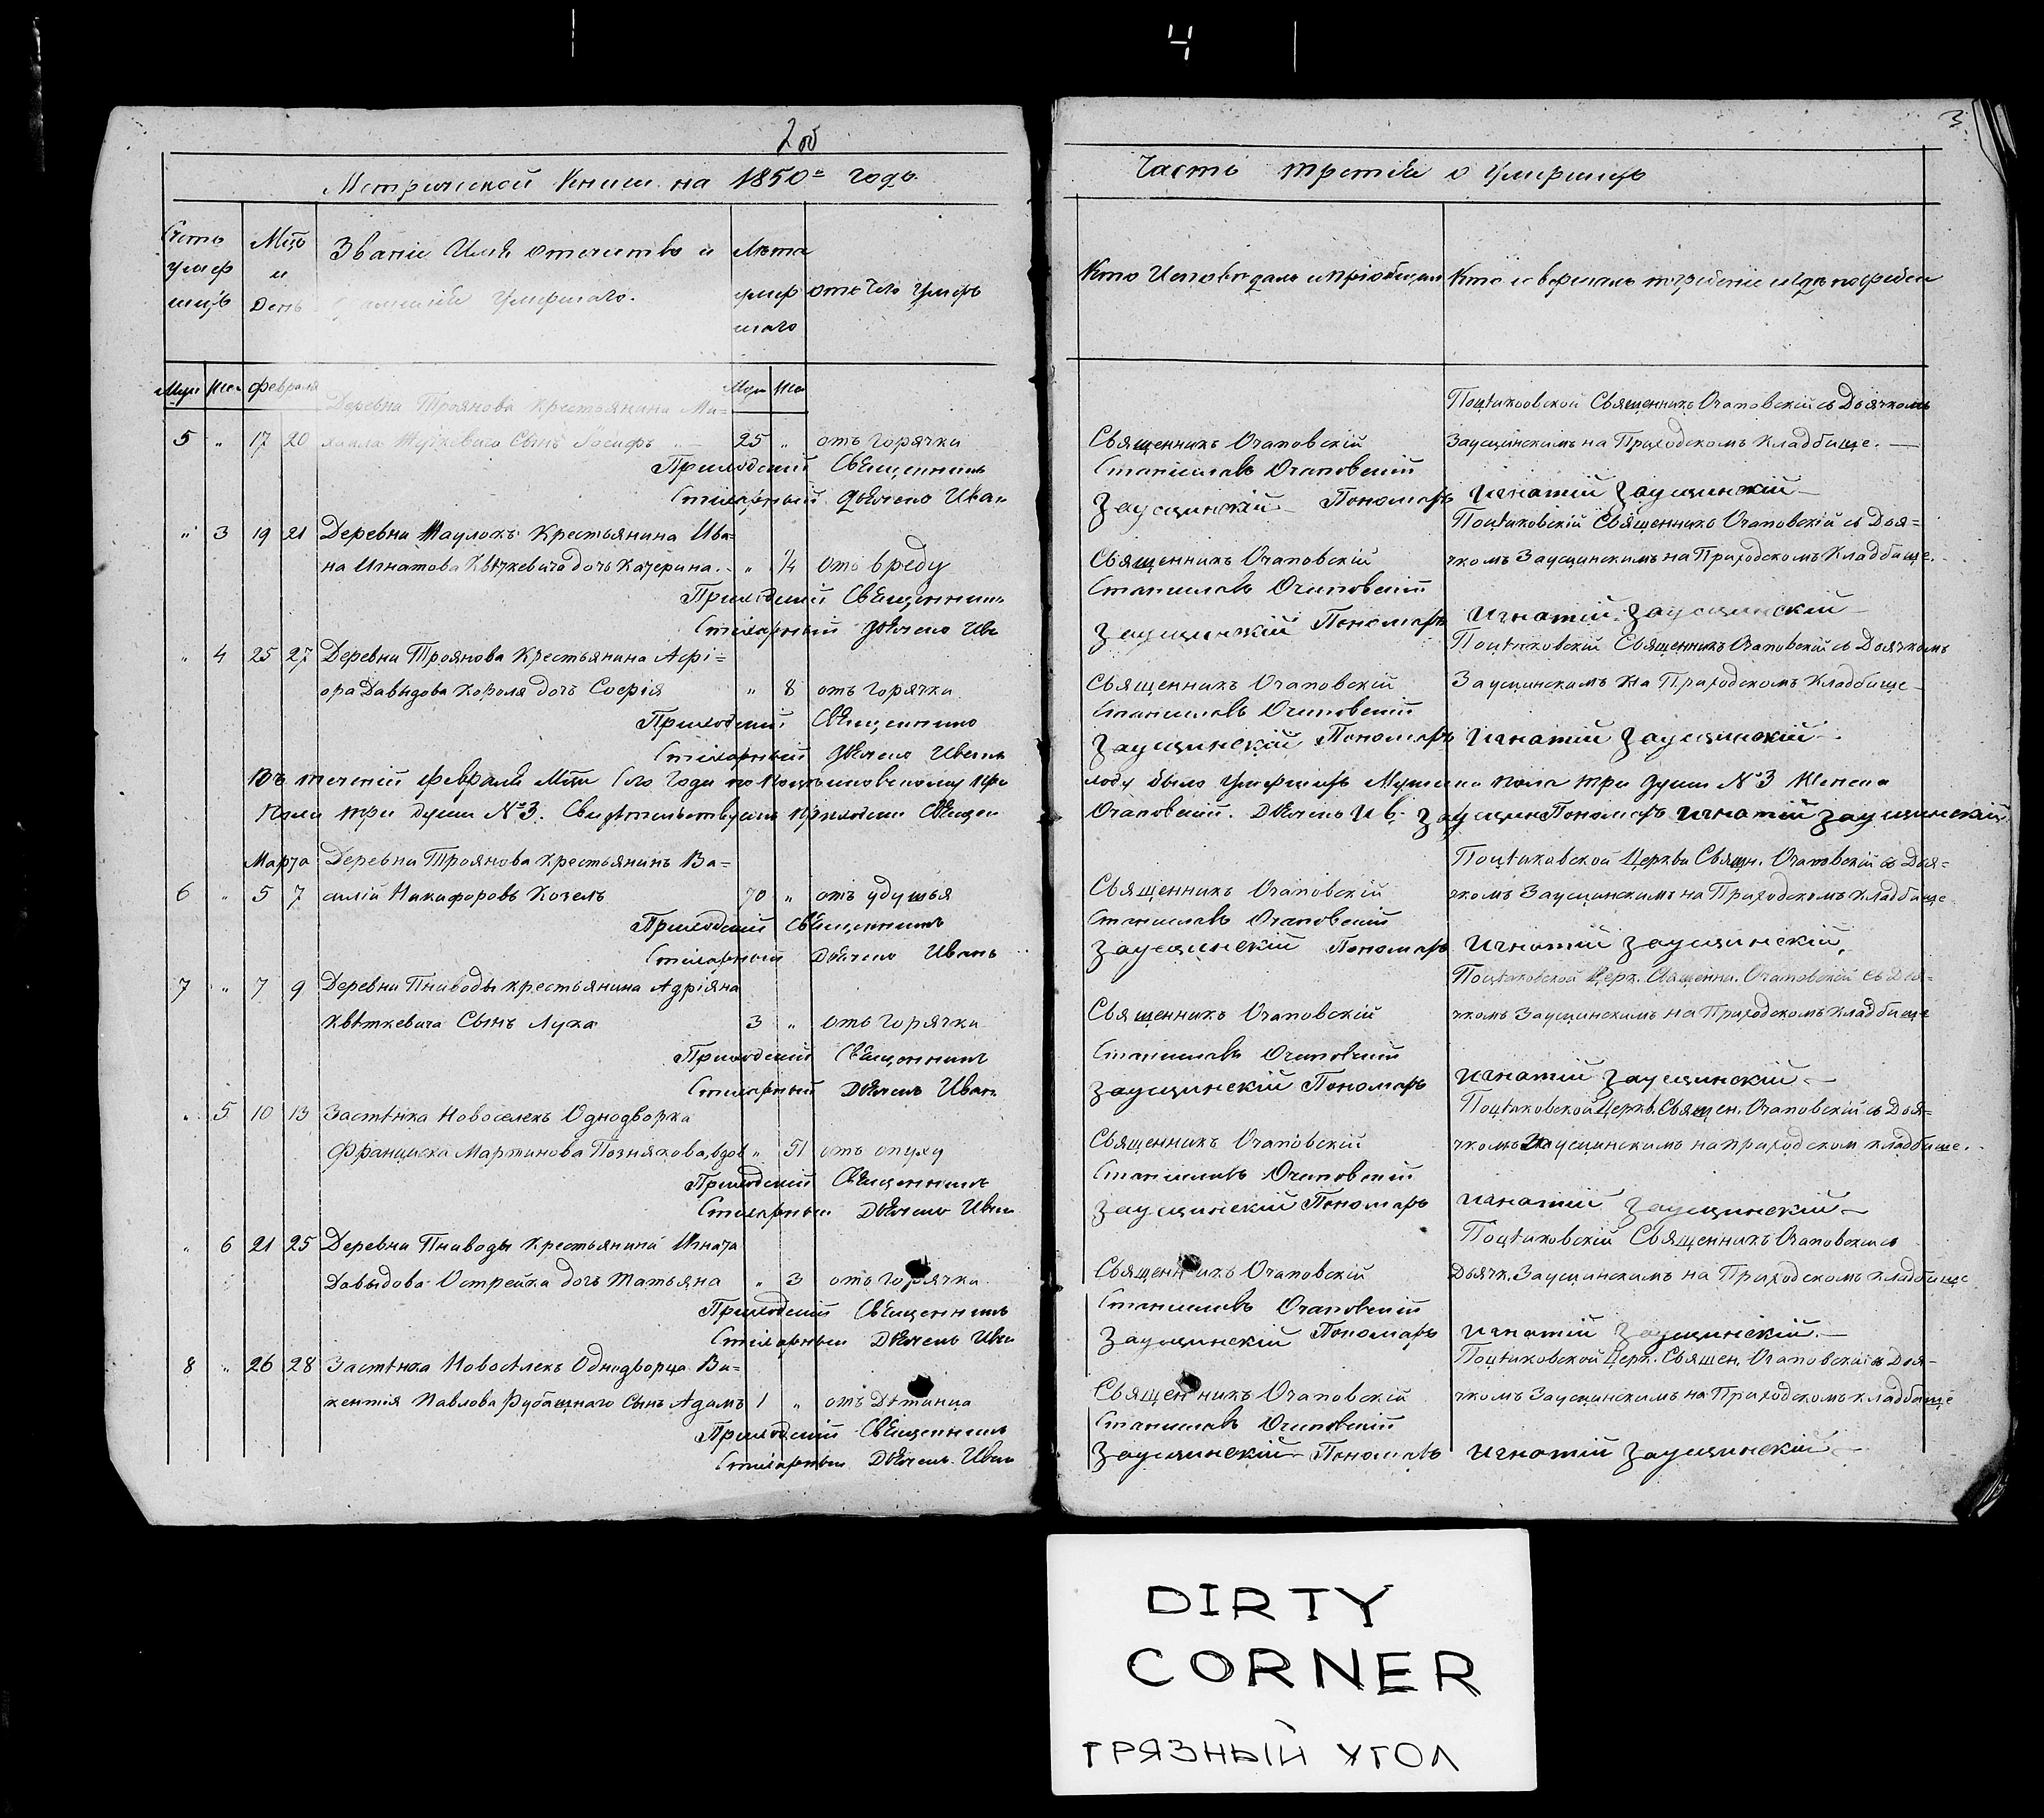 4
2 об
3.
Метрической Книги на 1850й годъ
Часть третія о Умершихъ
Счетъ умершихъ
Мцъ и День
Званіе Имя отечество и фамилія Умершаго.
Лѣта умершаго
отъ Чего Умеръ
Кто Исповѣдалъ и пріобщалъ
Кто совершалъ погребеніе и гдѣ погребен
Муж Жен февраля
Муж Же
Деревни Троянова Крестьянина Ми=
Поцѣйковской Священникъ Очаповскій съ Дьячкомъ
5 " 17 20 хаила Сынъ Іосифъ " 25 " отъ горячки
Священникъ Очаповскій
Заусцинскимъ на Приходскомъ Кладбище.
Приходскій Священникъ Станиславъ Очаповскій
Стихарный Дьячекъ Иван Заусцинскій Пономарь Игнатій Заусцинскій
" 3 19 21 Деревни Маулокъ Крестьянина Ива=
Поцѣйковскій Священникъ Очаповскій съ Дья=
на Игнатова Квѣткевича дочь Катерина. " 1/4 отъ вреду
Священникъ Очаповскій
чкомъ Заусцинскимъ на Приходскомъ Кладбище.
Приходскій Священник Станиславъ Очаповскій
Стихарный Дьячекъ Ив Заусцинскій Пономарь Игнатій Заусцинскій
" 4 25 27 Деревни Троянова Крестьянина Асфі=
Поцѣйковскій Священникъ Очаповскій съ Дьячкомъ
ора Давыдова Короля дочь Софія " 8 отъ горячки
Священникъ Очаповскій
Заусцинскимъ на Приходскомъ Кладбище
Приходскій Священникъ Станиславъ Очаповскій
Стихарный Дьячекъ Иванъ Заусцинскій Пономарь Игнатій Заусцинскій
Въ теченіи февраля Мца Сего Года по Поцѣйковскому При ходу было Умершихъ Мужеска пола три души №3 Женска
Пола три души №3. Свидѣтельствуемъ Приходскій Священ Очаповскій. Дьячекъ Ив. Заусцин Пономарь Игнатій Заусцинскій
Марта Деревни Троянова Крестьянинъ Ва=
Поцѣйковской Церкви Свящн. Очаповскій съ Дья=
6 " 5 7 силій Никифоровъ Козелъ 70 " отъ удушья
Священникъ Очаповскій
чкомъ Заусцинскимъ на Приходскомъ Кладбище
Приходскій Священникъ Станиславъ Очаповскій
Стихарный Дьячекъ Иванъ Заусцинскій Пономарь Игнатій Заусцинскій.
7 " 7 9 Деревни Пниводы Крестьянина Адріяна
Поцѣйковской Церк. Священн. Очаповской съ Дья=
Квѣткевича Сынъ Лука 3 " отъ горячки
Священникъ Очаповскій
чкомъ Заусцинскимъ на Приходскомъ Кладбище
Приходскій Священникъ Станиславъ Очаповскій
Стихарный Дьячекъ Иван Заусцинскій Пономарь Игнатій Заусцинскій
" 5 10 13 Застѣнка Новоселекъ Однодворка
Поцѣйковской Церкв. Священ. Очаповскій съ Дья=
Франциска Мартинова Познякова, вдов " 51 отъ опуху
Священникъ Очаповскій
чкомъ Заусцинскимъ на приходском кладбище.
Приходскій Священникъ Станиславъ Очаповскій
Стихарный Дьячекъ Иван Заусцинскій Пономарь Игнатій Заусцинскій
" 6 21 25 Деревни Пниводы Крестьянина Игната
Поцѣйковскій Священникъ Очаповскій съ
Давыдова Острейка дочь Татьяна " 3 отъ горячки
Священникъ Очаповскій
Дьячк. Заусцинскимъ на Приходскомъ кладбище
Приходскій Священникъ Станиславъ Очаповскій
Стихарный Дьячекъ Иван Заусцинскій Пономарь Игнатій Заусцинскій.
8 " 26 28 Застѣнка Новосѣлекъ Однодворца Ви=
Поцѣйковской Церк. Священ. Очаповскій съ Дья=
кентія Павлова Рубашнаго Сынъ Адамъ 1 " отъ Дѣтинца
Священникъ Очаповскій
чкомъ Заусцинскимъ на Приходскомъ кладбище
Приходскій Священникъ Станиславъ Очаповскій
Стихарный Дьячекъ Иван Заусцинскій Пономарь Игнатій Заусцинскій
DIRTY
CORNER
ГРЯЗНЫЙ УГОЛ